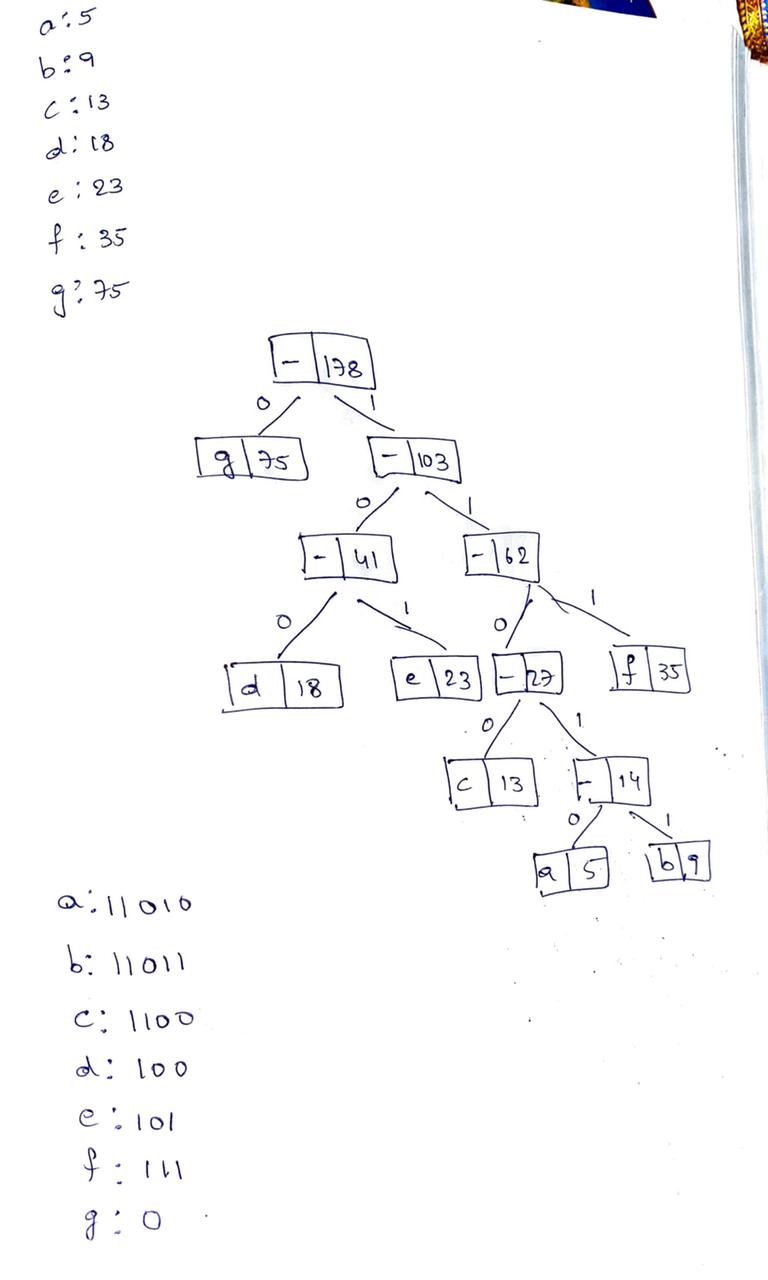 a:5
b:9
c:13
d:18
e:23
f:35
g:75
- 178
0 1
g 75 - 103
0 1
- 41 - 62
0 1 0 1
d 18 e 23 - 27 f 35
0 1
c 13 - 14
0 1
a 5 b 9
a:11010
b:11011
c:1100
d:100
e:101
f:111
g:0